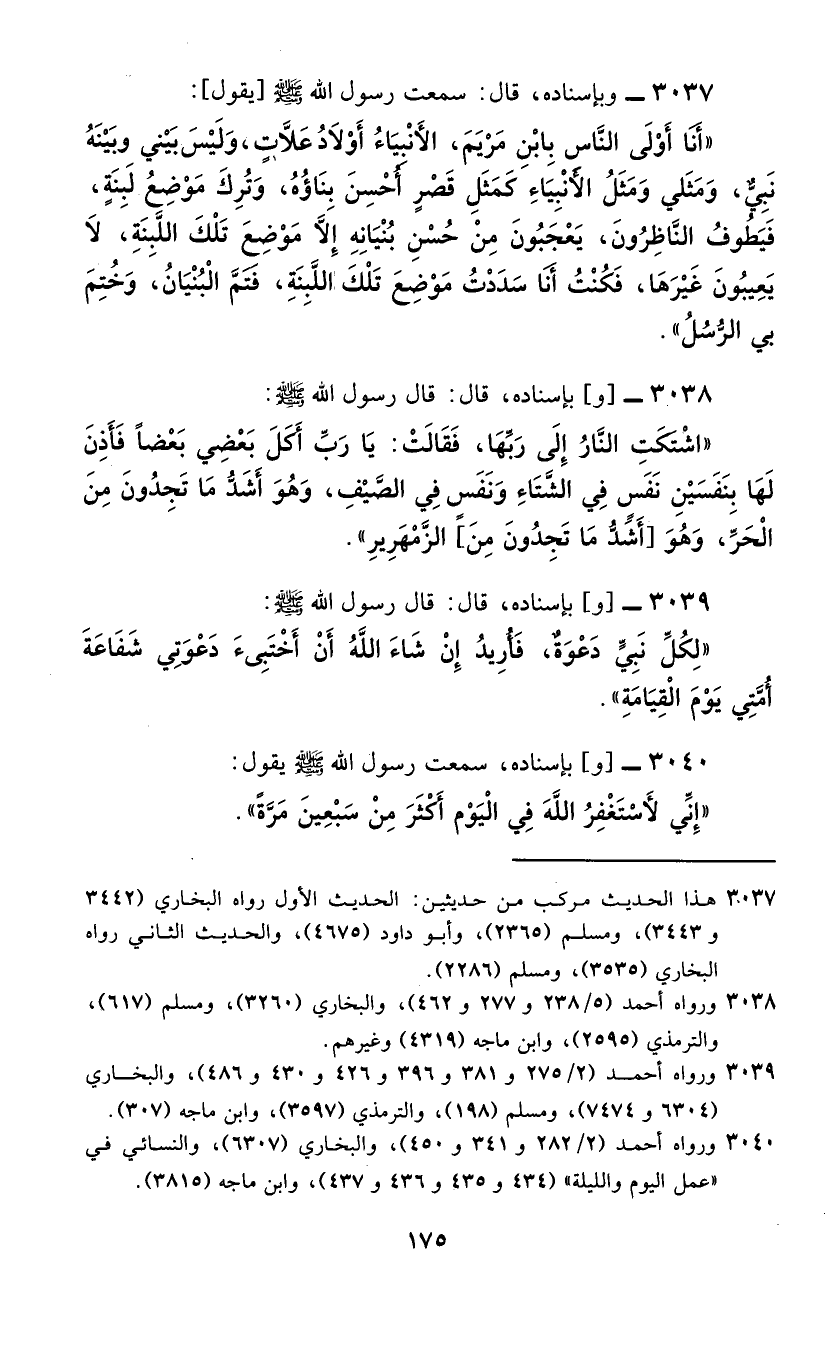 ٣٠٣٧ ــ وبإسناده، قال: سمعت رسول الله ﷺ [يقول]:
«أَنَا أَوْلَى النَّاسِ بِابْنِ مَرْيَمَ، الأَنْبِيَاءُ أَوْلَادُ عَلَّاتٍ، وَلَيْسَ بَيْنِي وبَيْنَهُ
نَبِيٌّ، وَمَثَلي وَمَثَلُ الأَنْبِيَاءِ كَمَثَلِ قَصْرٍ أُحْسِنَ بِنَاؤُهُ، وَتُرِكَ مَوْضِعُ لَبِنَةٍ،
فَيَطُوفُ النَّاظِرُونَ، يَعْجَبُونَ مِنْ حُسْنِ بُنْيَانِهِ إِلَّا مَوْضِعَ تَلْكَ اللَّبِنَةِ، لَا
يَعِيبُونَ غَيْرَهَا، فَكُنْتُ أَنَا سَدَدْتُ مَوْضِعَ تَلْكَ اللَّبِنَةِ، فَتَمَّ الْبُنْيَانُ، وَخُتِمَ
بي الرُّسُلُ».
٣٠٣٨ ــ [و] بإسناده، قال: قال رسول الله ﷺ:
«اشْتَكَتِ النَّارُ إِلَى رَبِّهَا، فَقَالَتْ: يَا رَبِّ أَكَلَ بَعْضِي بَعْضاً فَأَذِنَ
لَهَا بِنَفَسَيْنِ نَفَسٍ فِي الشِّتَاءِ وَنَفَسٍ فِي الصَّيْفِ، وَهُوَ أَشَدُّ مَا تَجِدُونَ مِنَ
الْحَرِّ، وَهُوَ [أَشَدُّ مَا تَجِدُونَ مِنَ] الزَّمْهَرِيرِ».
٣٠٣٩ ــ [و] بإسناده، قال: قال رسول الله ﷺ:
«لِكُلِّ نَبِيٍّ دَعْوَةٌ، فَأُرِيدُ إِنْ شَاءَ اللَّهُ أَنْ أَخْتَبِىءَ دَعْوَتِي شَفَاعَةَ
أُمَّتِي يَوْمَ الْقِيَامَةِ».
٣٠٤٠ ــ [و] بإسناده، سمعت رسول الله ﷺ يقول:
«إِنِّي لَأَسْتَغْفِرُ اللَّهَ فِي الْيَوْمِ أَكْثَرَ مِنْ سَبْعِينَ مَرَّةً».
٣٠٣٧ هذا الحديث مركب من حديثين: الحديث الأول رواه البخاري (٣٤٤٢
و ٣٤٤٣)، ومسلم (٢٣٦٥)، وأبو داود (٤٦٧٥)، والحديث الثاني رواه
البخاري (٣٥٣٥)، ومسلم (٢٢٨٦).
٣٠٣٨ ورواه أحمد (٢٣٨/٥ و ٢٧٧ و ٤٦٢)، والبخاري (٣٢٦٠)، ومسلم (٦١٧)،
والترمذي (٢٥٩٥)، وابن ماجه (٤٣١٩) وغيرهم.
٣٠٣٩ ورواه أحمد (٢٧٥/٢ و ٣٨١ و ٣٩٦ و ٤٢٦ و ٤٣٠ و ٤٨٦)، والبخاري
(٦٣٠٤ و ٧٤٧٤)، ومسلم (١٩٨)، والترمذي (٣٥٩٧)، وابن ماجه (٣٠٧).
٣٠٤٠ ورواه أحمد (٢٨٢/٢ و ٣٤١ و ٤٥٠)، والبخاري (٦٣٠٧)، والنسائي في
«عمل اليوم والليلة» (٤٣٤ و ٤٣٥ و ٤٣٦ و ٤٣٧)، وابن ماجه (٣٨١٥).
١٧٥